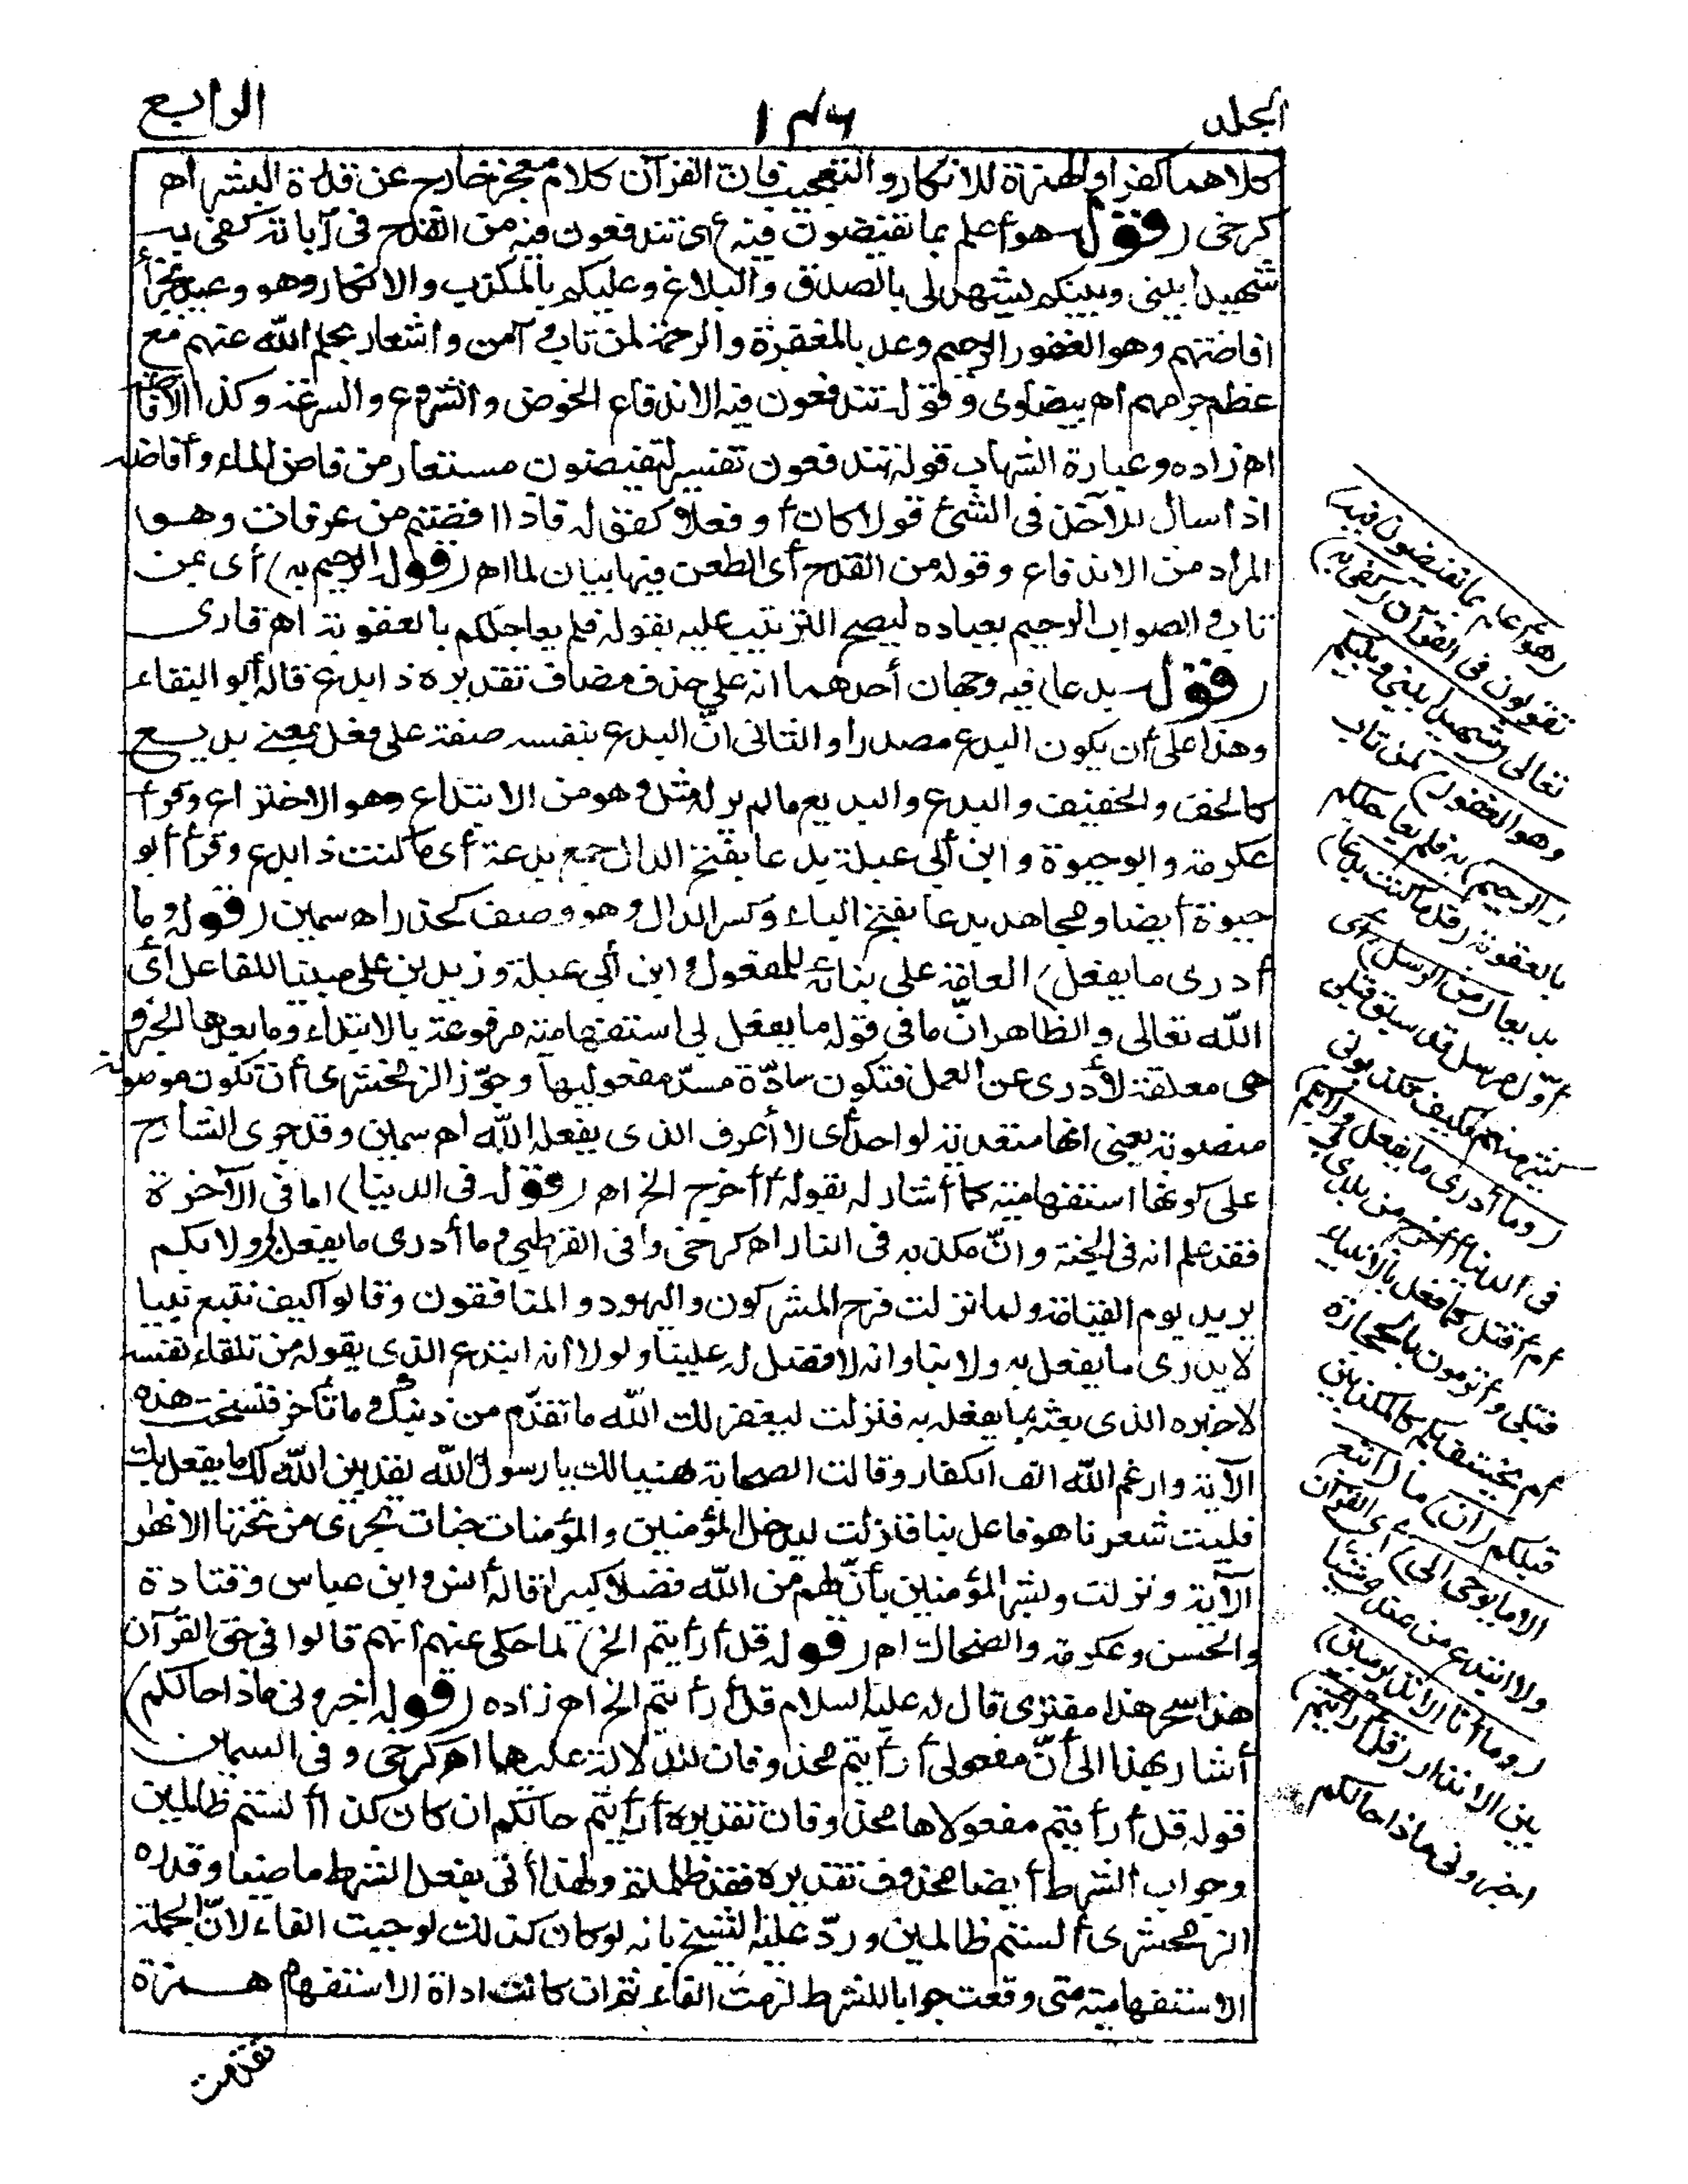 المجلد
١٣٦
الرابع
كلاهما كفر أو الهمزة للانكار والتعجيب فان القرآن كلام معجز خارج عن قدرة البشر اه
كرخى (قوله هو أعلم بما تفيضون فيه) أى تندفعون فيه من القدح فى آياته كفى به
شهيدا بينى وبينكم يشهد لى بالصدق والبلاغ وعليكم بالكذب والانكار وهو وعيد بجزاء
افاضتهم وهو الغفور الرحيم وعد بالمغفرة والرحمة لمن تاب وآمن واشعار بحلم الله عنهم مع
عظم جرامهم اه بيضاوى وقوله تندفعون فيه الاندفاع الخوض والشروع والسرعة وكذا الافاضة
اه زاده وعبارة الشهاب قوله تندفعون تفسير لتفيضون مستعار من فاض الماء وأفاضه
اذا سال للأخذ فى الشئ قولا كان أو فعلا كقوله فاذا افضتم من عرفات وهو
المراد من الاندفاع وقوله من القدح أى الطعن فيها بيان لما اه (قوله الرحيم به) أى بمن
تاب والصواب الرحيم بعباده ليصح الترتيب عليه بقوله فلم يعاجلكم بالعقوبة اه قارى
(قوله بدعا) فيه وجهان أحدهما انه على حذف مضاف تقديره ذا بدع قاله أبو البقاء
وهذا على أن يكون البدع مصدرا والثانى انّ البدع بنفسه صفة على فعل بمعنى بديع
كالخف والخفيف والبدع والبديع ما لم ير له مثل وهو من الابتداع وهو الاختراع وقرأ
عكرمة وابو حيوة وابن أبى عبلة بدعا بفتح الدال جمع بدعة أى ما كنت ذا بدع وقرأ أبو
حيوة أيضا ومجاهد بدعا بفتح الباء وكسر الدال وهو وصف كحذر اه سمين (قوله وما
أدرى ما يفعل) العامة على بنائه للمفعول وابن أبى عبلة وزيد بن على مبنيا للفاعل أى
الله تعالى والظاهر انّ ما فى قوله ما يفعل بى استفهامية مرفوعة بالابتداء وما بعدها الخبر و
هى معلقة لأدرى عن العمل فتكون سادّة مسدّ مفعوليها وجوّز الزمخشرى أن تكون موصولة
منصوبة يعنى انها متعدية لواحد أى لا أعرف الذى يفعله الله اه سمين وقد جرى الشارح
على كونها استفهامية كما أشار له بقوله أأخرج الخ اه (قوله فى الدنيا) اما فى الآخرة
فقد علم انه فى الجنة وانّ مكذبه فى النار اه كرخى وفى القرطبى وما أدرى ما يفعل بى ولا بكم
يريد يوم القيامة ولما نزلت فرح المشركون واليهود والمنافقون وقالوا كيف نتبع نبيا
لا يدرى ما يفعل به ولا بنا وانه لا فضل له علينا ولولا أنه ابتدع الذى يقوله من تلقاء نفسه
لاخبره الذى بعثه بما يفعل به فنزلت ليغفر لك الله ما تقدّم من ذنبك وما تأخر فنسخت هذه
الآية وارغم الله انف الكفار وقالت الصحابة هنيا لك يا رسول الله لقد بين الله لك ما يفعل بك
فليت شعرنا ما هو فاعل بنا فنزلت ليدخل المؤمنين والمؤمنات جنات تجرى من تحتها الانهر
الآية ونزلت وبشر المؤمنين بأنّ لهم من الله فضلا كبيرا قاله أنس وابن عباس وقتادة
والحسن وعكرمة والضحاك اه (قوله قل أرأيتم الخ) لما حكى عنهم أنهم قالوا فى حق القرآن
هذا سحر هذا مفترى قال له عليه السلام قل أرأيتم الخ اه زاده (قوله اخبرونى ماذا حالكم)
أشار بهذا الى أنّ مفعولى أرأيتم محذوفان للدلالة عليهما اه كرخى وفى السمين
قوله قل أرأيتم مفعولاها محذوفان تقديره أرأيتم حالكم ان كان كذا ألستم ظالمين
وجواب الشرط أيضا محذوف تقديره فقد ظلمتم ولهذا أتى بفعل الشرط ماضيا وقدره
الزمخشرى ألستم ظالمين وردّ عليه الشيخ بانه لو كان كذلك لوجبت الفاء لانّ الجملة
الاستفهامية متى وقعت جوابا للشرط لزمت الفاء ثم ان كانت اداة الاستفهام همزة
(هو أعلم بما تفيضون فيه)
تقولون فى القرآن (كفى به)
تعالى (شهيدا بينى وبينكم
وهو الغفور) لمن تاب
(الرحيم) به فلم يعاجلكم
بالعقوبة (قل ما كنت بدعا)
بديعا (من الرسل) أى
أوّل مرسل قد سبق قبلى
كثير منهم فكيف تكذبونى
(وما أدرى ما يفعل بى ولا بكم)
فى الدنيا أأخرج من بلدى
أم أقتل كما فعل بالانبياء
قبلى وأترمون بالحجارة
أم يخسف بكم كالمكذبين
قبلكم (ان) ما (أتبع
الا ما يوحى الى) أى القرآن
ولا ابتدع من عندى شيئا
(وما أنا الا نذير مبين)
بين الانذار (قل أرأيتم)
اخبرونى ماذا حالكم